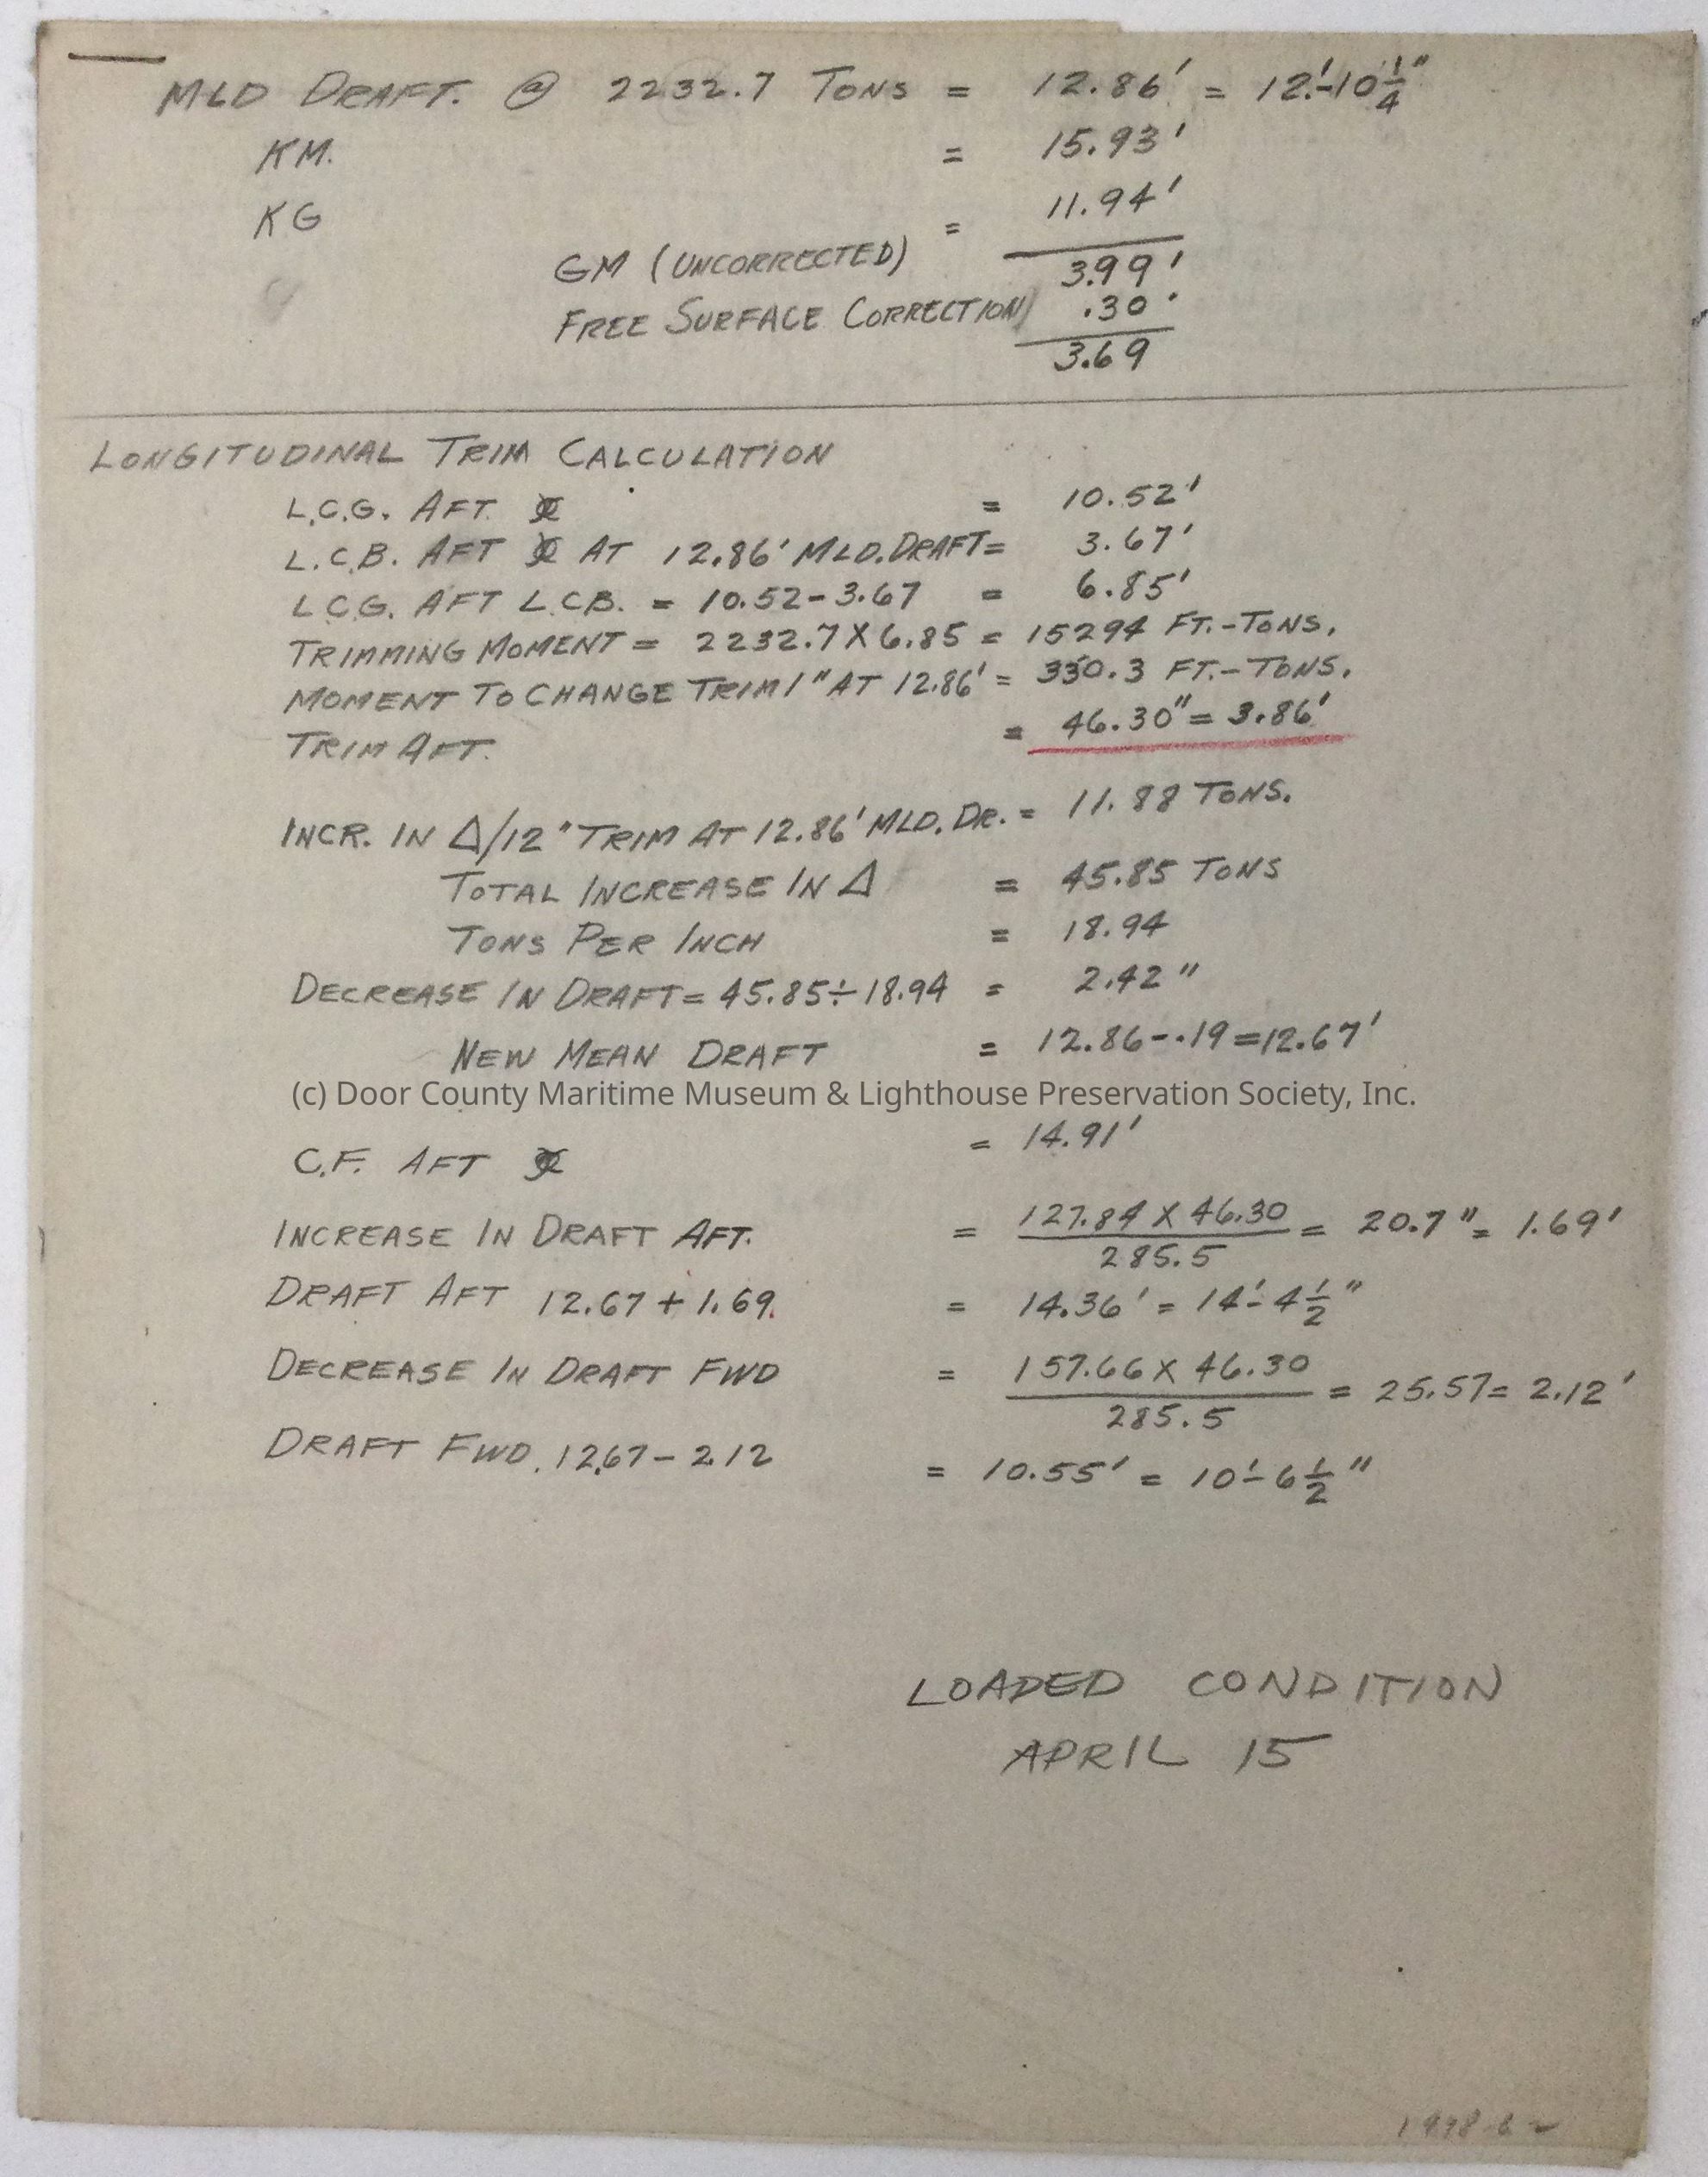 MLD DRAFT. @ 2232.7 TONS = 12.86' = 12'-10 1/4"
KM. = 15.93'
KG = 11.94'
GM (UNCORRECTED) 3.99'
FREE SURFACE CORRECTION .30'
3.69
LONGITUDINAL TRIM CALCULATION
L.C.G. AFT = 10.52'
L.C.B. AFT AT 12.86' MLD. DRAFT = 3.67'
L.C.G. AFT L.C.B. = 10.52-3.67 = 6.85'
TRIMMING MOMENT = 2232.7 X 6.85 = 15294 FT.-TONS.
MOMENT TO CHANGE TRIM 1" AT 12.86' = 330.3 FT.-TONS.
TRIM AFT. = 46.30" = 3.86'
INCR. IN Δ/12" TRIM AT 12.86' MLD. DR. = 11.88 TONS.
TOTAL INCREASE IN Δ = 45.85 TONS
TONS PER INCH = 18.94
DECREASE IN DRAFT = 45.85÷18.94 = 2.42"
NEW MEAN DRAFT = 12.86-.19=12.67'
(c) Door County Maritime Museum & Lighthouse Preservation Society, Inc.
C.F. AFT = 14.91'
INCREASE IN DRAFT AFT. = 127.84 X 46.30 / 285.5 = 20.7" = 1.69'
DRAFT AFT 12.67 + 1.69 = 14.36' = 14'-4 1/2"
DECREASE IN DRAFT FWD = 157.66 X 46.30 / 285.5 = 25.57 = 2.12'
DRAFT FWD. 12.67 - 2.12 = 10.55' = 10'-6 1/2"
LOADED CONDITION
APRIL 15